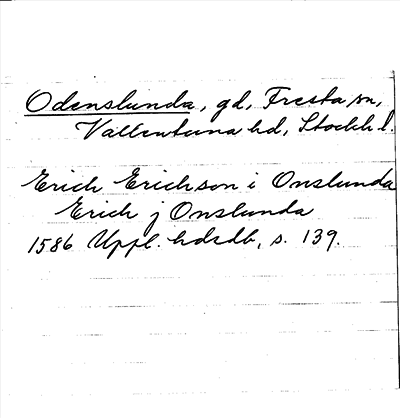 Odenslunda, gd, Fresta sn,
Vallentuna hd, Stockh. l.
Erich Erichson i Onslunda
Erich j Onslunda
1586 Uppl. hdrdb, s. 139.